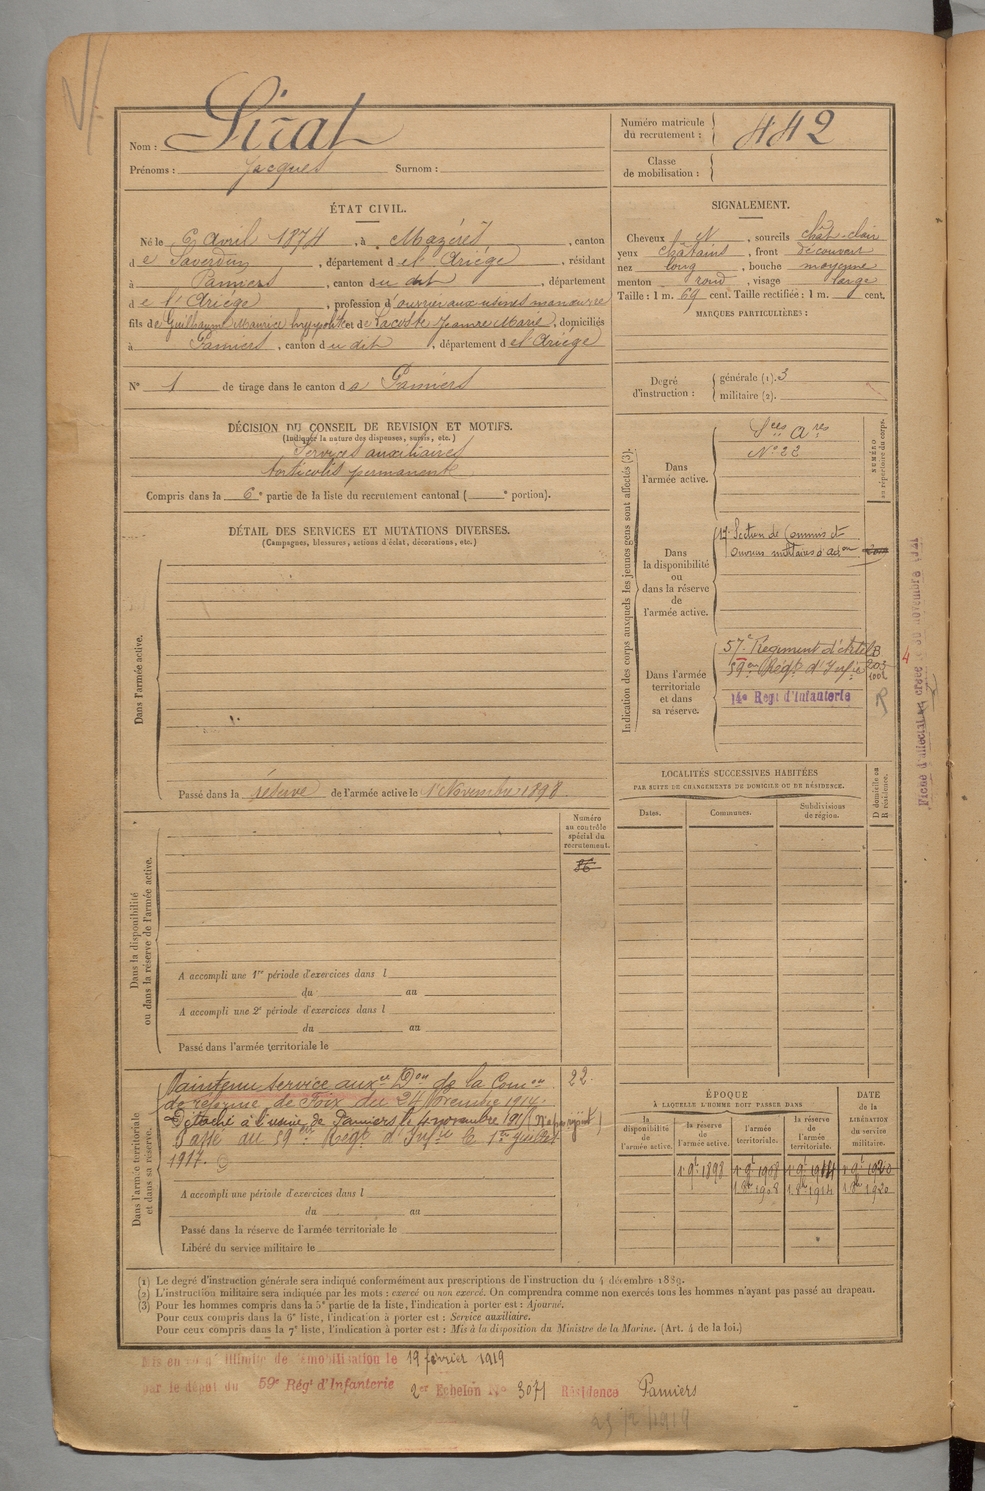 Nom : Sirat
Prénoms : Jacques Surnom :
Numéro matricule du recrutement : 442
Classe de mobilisation :
ÉTAT CIVIL.
Né le 6 Avril 1874, à Mazères, canton
de Saverdun, département de l'Ariège, résidant
à Pamiers, canton du dit, département
de l'Ariège, profession d'ouvrier aux usines manœuvre
fils de Guilhaume Maurice hyppolite et de Lacoste Jeanne Marie, domiciliés
à Pamiers, canton du dit, département de l'Ariège
N° 1 de tirage dans le canton de Pamiers
SIGNALEMENT.
Cheveux N, sourcils chât-clair
yeux châtains, front découvert
nez long, bouche moyenne
menton rond, visage large
Taille : 1 m. 69 cent. Taille rectifiée : 1 m. cent.
MARQUES PARTICULIÈRES :
Degré d'instruction : générale (1). 3
militaire (2).
DÉCISION DU CONSEIL DE REVISION ET MOTIFS.
(Indiquer la nature des dispenses, sursis, etc.)
Services auxiliaires
torticolis permanent
Compris dans la 6e partie de la liste du recrutement cantonal ( e portion).
DÉTAIL DES SERVICES ET MUTATIONS DIVERSES.
(Campagnes, blessures, actions d'éclat, décorations, etc.)
Dans l'armée active.
Passé dans la réserve de l'armée active le 1 Novembre 1898
Indication des corps auxquels les jeunes gens sont affectés (3).
NUMÉRO au répertoire du corps.
Dans l'armée active.
Sces Ares
N° 22
Dans la disponibilité ou dans la réserve de l'armée active.
17e Section de Commis et
ouvriers militaires d'adon
Dans l'armée territoriale et dans sa réserve.
57e Régiment d'Artie
59e Régt d'Infie
14e Regt d'Infanterie
LOCALITÉS SUCCESSIVES HABITÉES
PAR SUITE DE CHANGEMENTS DE DOMICILE OU DE RÉSIDENCE.
Dates. Communes. Subdivisions de région. D domicile ou R résidence.
Numéro au contrôle spécial du recrutement.
Dans la disponibilité ou dans la réserve de l'armée active.
A accompli une 1re période d'exercices dans l
du au
A accompli une 2e période d'exercices dans l
du au
Passé dans l'armée territoriale le
Dans l'armée territoriale et dans sa réserve.
Maintenu service auxre Don de la Comon 22.
de réforme de Foix du 24 Novembre 1914.
Détaché à l'usine de Pamiers le 4 novembre 191
Passé au 59e Régt d'Infie le 1er Juillet
1917.
A accompli une période d'exercices dans l
du au
Passé dans la réserve de l'armée territoriale le
Libéré du service militaire le
ÉPOQUE
À LAQUELLE L'HOMME DOIT PASSER DANS
la disponibilité de l'armée active. la réserve de l'armée active. l'armée territoriale. la réserve de l'armée territoriale.
DATE de la LIBÉRATION du service militaire.
1 9bre 1898 1 9bre 1908 1 9bre 1914 1 9bre 1920
1 8bre 1908 1 8bre 1914 1 8bre 1920
(1) Le degré d'instruction générale sera indiqué conformément aux prescriptions de l'instruction du 4 décembre 1889.
(2) L'instruction militaire sera indiquée par les mots : exercé ou non exercé. On comprendra comme non exercés tous les hommes n'ayant pas passé au drapeau.
(3) Pour les hommes compris dans la 5e partie de la liste, l'indication à porter est : Ajourné.
Pour ceux compris dans la 6e liste, l'indication à porter est : Service auxiliaire.
Pour ceux compris dans la 7e liste, l'indication à porter est : Mis à la disposition du Ministre de la Marine. (Art. 4 de la loi.)
Mis en congé illimité de démobilisation le 19 février 1919
par le dépôt du 59e Régt d'Infanterie 2er Echelon N° 3071 Résidence Pamiers